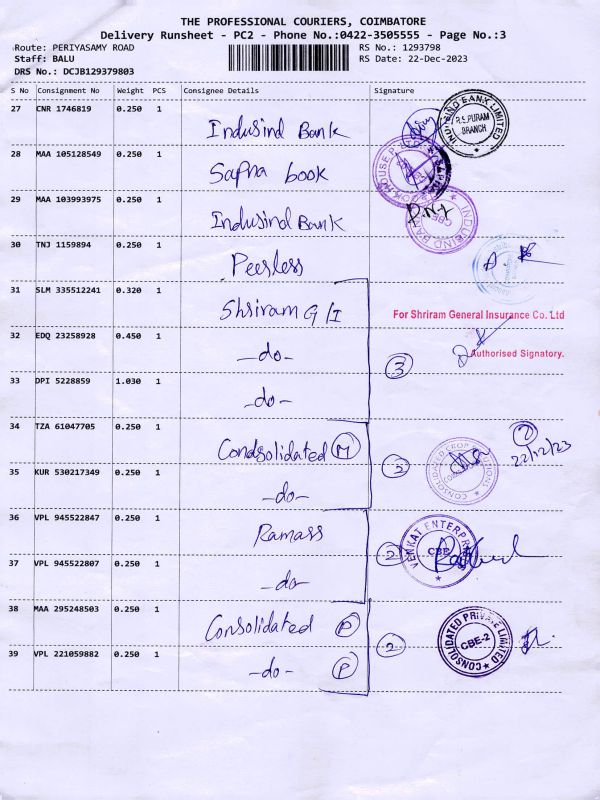 THE PROFESSIONAL COURIERS, COIMBATORE
Delivery Runsheet - PC2 - Phone No.:0422-3505555 - Page No.:3
Route: PERIYASAMY ROAD RS No.: 1293798
Staff: BALU RS Date: 22-Dec-2023
DRS No.: DCJB129379803
S No Consignment No Weight PCS Consignee Details Signature
27 CNR 1746819 0.250 1 Indusind Bank
INDUSIND BANK LIMITED R.S.PURAM BRANCH
28 MAA 105128549 0.250 1 Sapna book
29 MAA 103993975 0.250 1 Indusind Bank
INDUSIND BANK CBE
30 TNJ 1159894 0.250 1 Peerless
31 SLM 335512241 0.320 1 Shriram G/I
For Shriram General Insurance Co. Ltd
32 EDQ 23258928 0.450 1 -do-
Authorised Signatory.
3
33 DPI 5228859 1.030 1 -do-
34 TZA 61047705 0.250 1 Condsolidated M
2
22/12/23
35 KUR 530217349 0.250 1 -do-
36 VPL 945522847 0.250 1 Ramass
2 VENKAT ENTERPR CBE
37 VPL 945522807 0.250 1 -do-
38 MAA 295248503 0.250 1 Consolidated P
2 CONSOLIDATED PRIVATE LIMITED CBE-2
39 VPL 221059882 0.250 1 -do- P